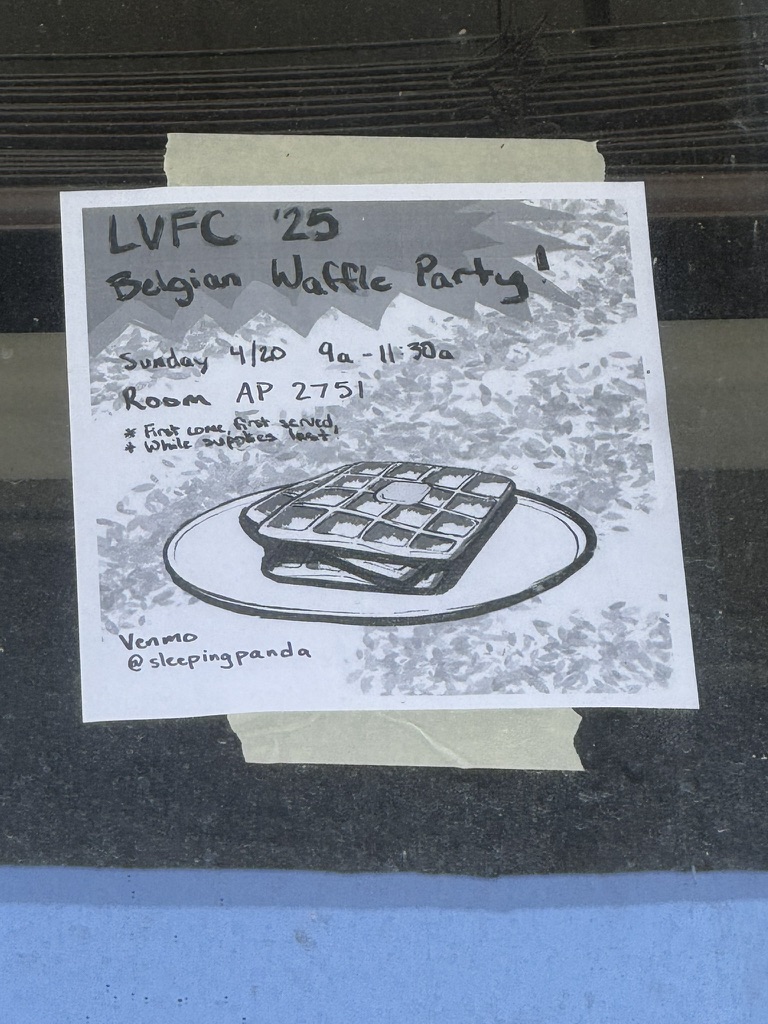 LVFC '25
Belgian Waffle Party!
Sunday 4/20 9a-11:30a
Room AP 2751
* First come, first served,
* While supplies last!
Venmo
@sleepingpanda